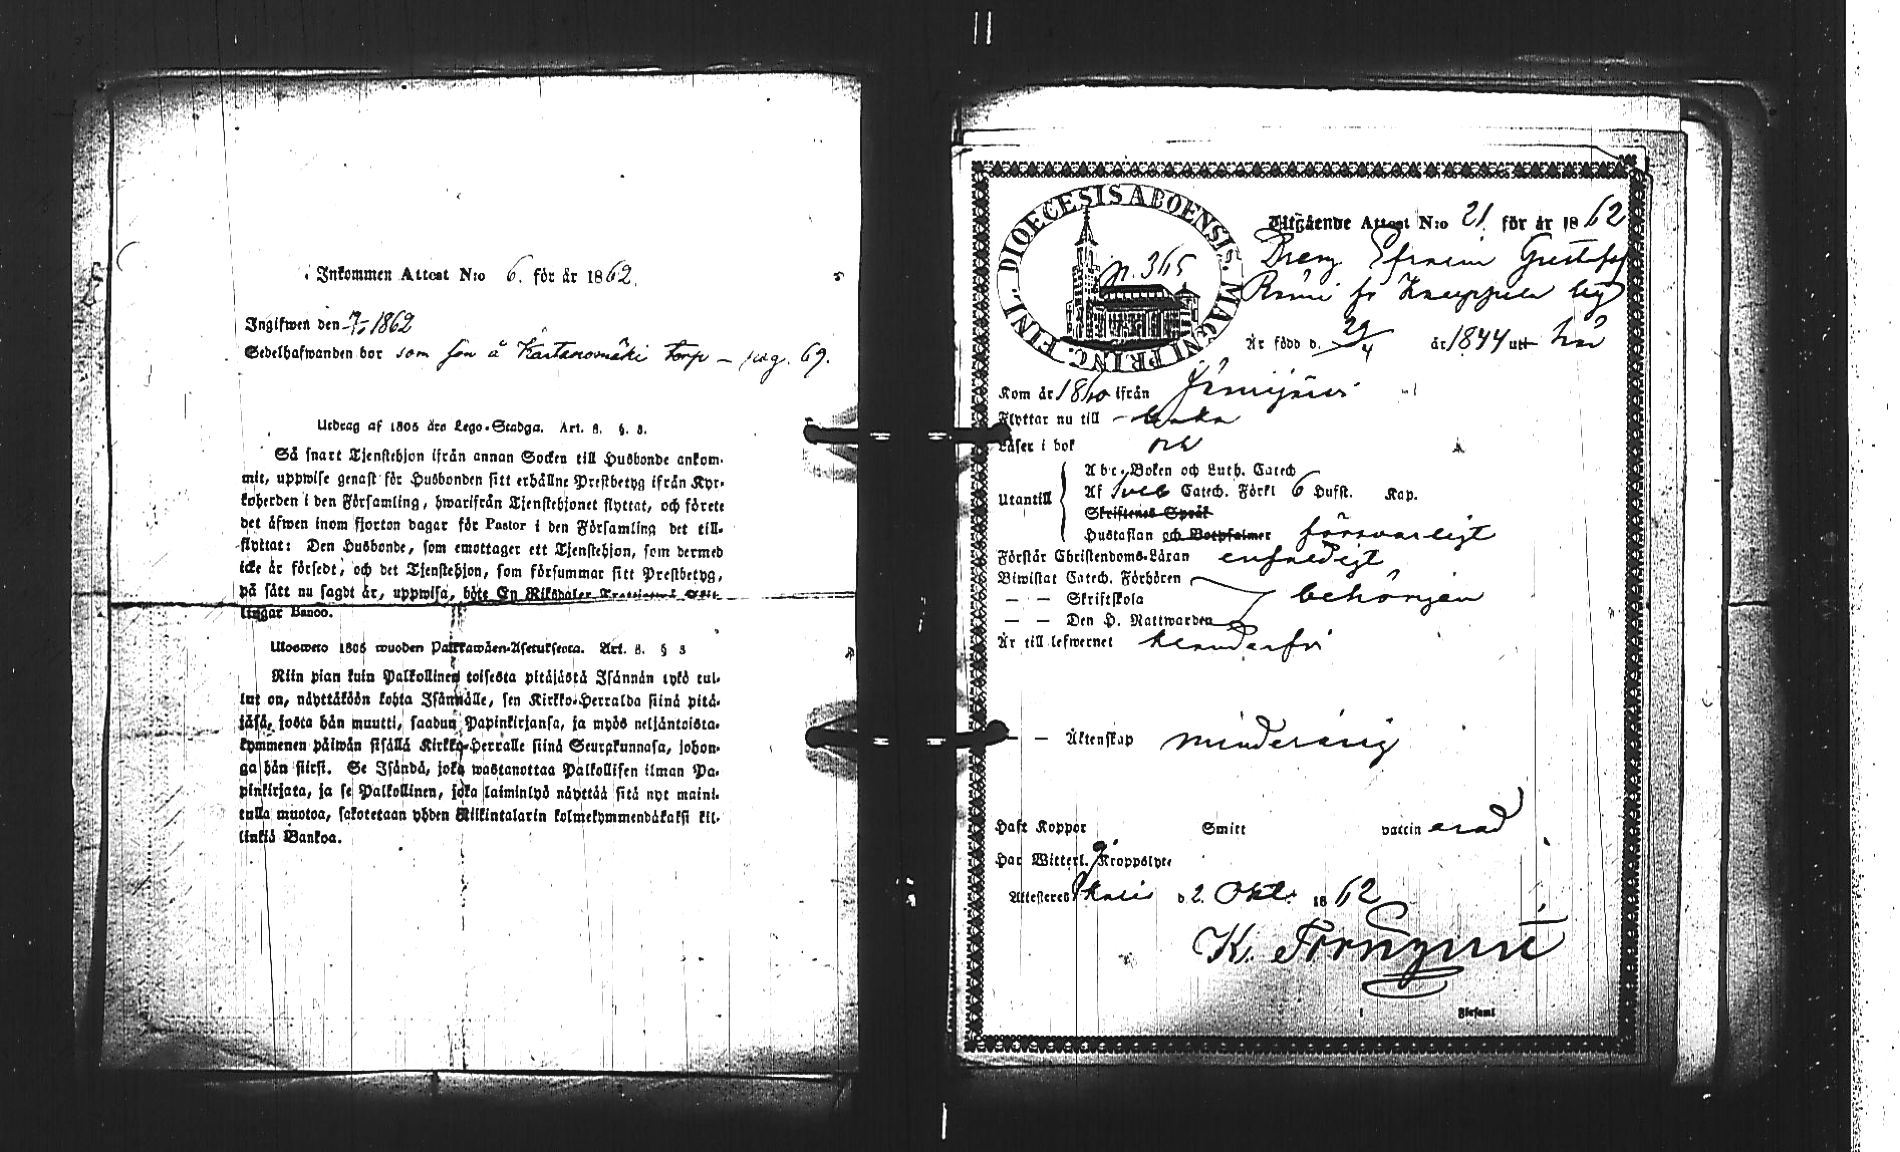 Inkommen Attest N:o 6. för år 1862.
Ingifwen den 7/10 1862
Sedelhafwanden bor som son å Kartanomäki torp – pag. 69.
Utdrag af 1805 års Lego-Stadga. Art. 8. §. 3.
Så snart Tjenstehjon ifrån annan Socken till Husbonde ankom-
mit, uppwise genast för Husbonden sitt erhållne Prestbetyg ifrån Kyr-
koherden i den Församling, hwarifrån Tjenstehjonet flyttat, och förete
det äfwen inom fjorton dagar för Pastor i den Församling det till-
flyttat: Den Husbonde, som emottager ett Tjenstehjon, som dermed
icke är försedt, och det Tjenstehjon, som försummar sitt Prestbetyg,
på sätt nu sagdt är, uppwisa, böte En Riksdaler Trettiotwå Skil-
lingar Banco.
Ulosweto 1805 wuoden Palkkawäen-Asetuksesta. Art. 8. § 3
Niin pian kuin Palkollinen toisesta pitäjästä Isännän tykö tul-
lut on, näyttäköön kohta Isännälle, sen Kirkko-Herralda siinä pitä-
jäsä, josta hän muutti, saadun Papinkirjansa, ja myös neljäntoista-
kymmenen päiwän sisällä Kirkko-Herralle siinä Seurakunnasa, johon-
ga hän siirsi. Se Isändä, joka wastanottaa Palkollisen ilman Pa-
pinkirjata, ja se Palkollinen, joka laiminlyö näyttää sitä nyt maini-
tulla muotoa, sakotetaan yhden Riikintalarin kolmekymmendäkaksi kil-
linkiä Bankoa.
DIOECESIS ABOENSIS. MAGNI PRINC. FINL.
p. 365
Utgående Attest N:o 21 för år 1862
Dreng Efraim Gustafss
Är född d. 29/4 år 1844 utt här
Kom år 1860 ifrån Jämijärvi
Flyttar nu till
Läser i bok
Utantill
Abc-Boken och Luth. Catech
Af Sveb Catech. Förkl 6 Hufst. Kap.
Skriftenes Språk
Hustaflan och Botpsalmer försvarligt
Förstår Christendoms-Läran enfaldigt
Biwistat Catech. Förhören
— — Skriftskola behörigen
— — Den H. Nattwarden
Är till lefwernet klanderfri
— — Äktenskap minderårig
Haft Koppor Smitt vaccin erad
Har Witterl. Kroppslyte
Attesteras d. 2. Okt. 1862
K. Törnqvist
Församl